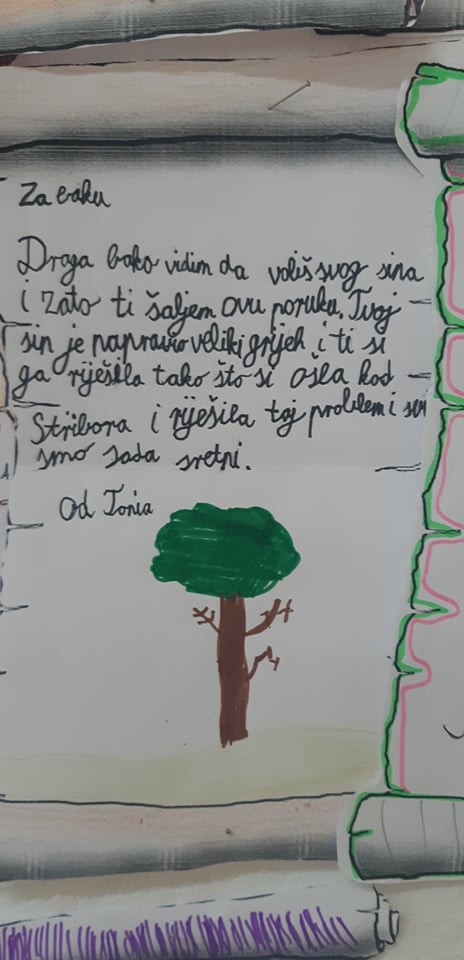 Za baku
Draga bako vidim da voliš svog sina
i zato ti šaljem ovu poruku. Tvoj
sin je napravio veliki grijeh i ti si
ga riješila tako što si ošla kod
Stribora i riješila taj problem i svi
smo sada sretni.
Od Tonia